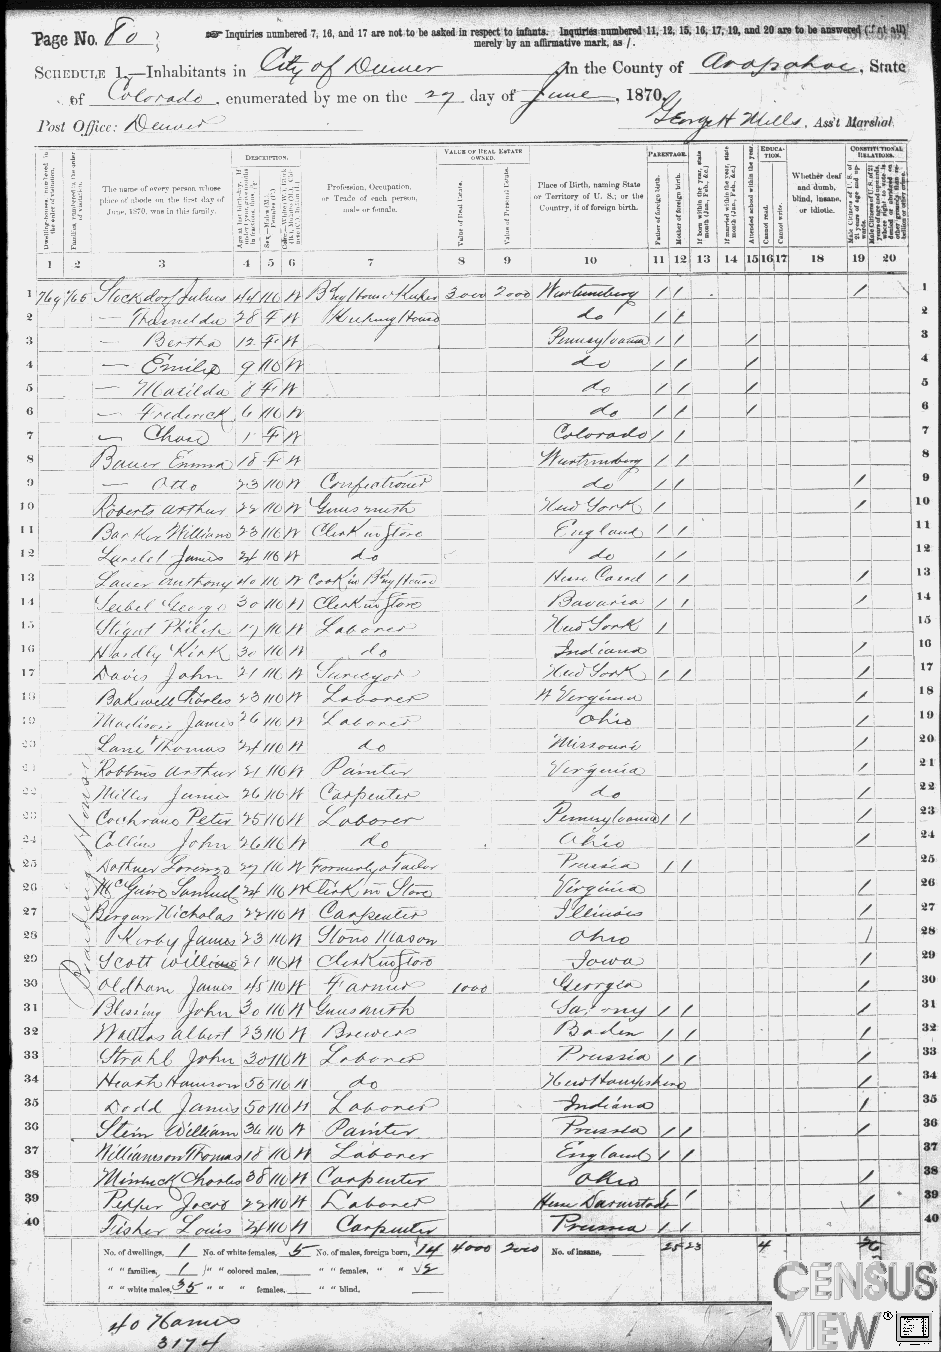 Page No. 80
☞ Inquiries numbered 7, 16, and 17 are not to be asked in respect to infants. Inquiries numbered 11, 12, 15, 16, 17, 19, and 20 are to be answered (if at all)
merely by an affirmative mark, as /.
SCHEDULE 1.—Inhabitants in City of Denver, in the County of Arapahoe, State
of Colorado, enumerated by me on the 27 day of June, 1870.
Post Office: Denver George H Mills, Ass't Marshal.
DESCRIPTION. VALUE OF REAL ESTATE OWNED. PARENTAGE. EDUCATION. CONSTITUTIONAL RELATIONS.
Dwelling-houses, numbered in the order of visitation.
Families, numbered in the order of visitation.
The name of every person whose place of abode on the first day of June, 1870, was in this family.
Profession, Occupation, or Trade of each person, male or female.
Value of Real Estate.
Value of Personal Estate.
Place of Birth, naming State or Territory of U. S.; or the Country, if of foreign birth.
Father of foreign birth.
Mother of foreign birth.
If born within the year, state month (Jan., Feb., &c.)
If married within the year, state month (Jan., Feb., &c.)
Attended school within the year.
Cannot read.
Cannot write.
Whether deaf and dumb, blind, insane, or idiotic.
1 2 3 4 5 6 7 8 9 10 11 12 13 14 15 16 17 18 19 20
1 769 765 Stockdorf Julius 44 M W Bdng House Keeper 3000 2000 Wurtemberg / / / 1
2 — 28 F W Keeping House do / / 2
3 — Bertha 12 F W Pennsylvania / / / 3
4 — Emile 9 M W do / / / 4
5 — Matilda 8 F W do / / / 5
6 — Frederick 6 M W do / / / 6
7 — 1 F W Colorado / / 7
8 Bauer Emma 18 F W Wurtemberg / / 8
9 — Otto 23 M W Confectioner do / / / 9
10 Roberts Arthur 22 M W Gunsmith New York / / 10
11 Barker William 23 M W Clerk in Store England / / 11
12 James 24 M W do do / / 12
13 Lauer Anthony 40 M W Cook in Bdng House Hesse Cassel / / / 13
14 Seibel George 30 M W Clerk in Store Bavaria / / / 14
15 Philip 17 M W Laborer New York / 15
16 Hardly Kirk 30 M W do Indiana / 16
17 Davis John 21 M W Surveyor New York / / / 17
18 Bakewell Charles 23 M W Laborer W Virginia / 18
19 Madison James 26 M W Laborer Ohio / 19
20 Lane Thomas 24 M W do Missouri / 20
21 Robbins Arthur 21 M W Painter Virginia / 21
22 Miller James 26 M W Carpenter do / 22
23 Cochrane Peter 25 M W Laborer Pennsylvania / / / 23
24 Collins John 26 M W do Ohio / 24
25 Lorenzo 27 M W Formerly a Tailor Prussia / / 25
26 McGuire Samuel 24 M W Clerk in Store Virginia / 26
27 Bergan Nicholas 22 M W Carpenter Illinois / 27
28 Kirby James 23 M W Stone Mason Ohio / 28
29 Scott William 21 M W Clerk in Store Iowa / 29
30 Oldham James 45 M W Farmer 1000 Georgia / 30
31 Blessing John 30 M W Gunsmith Saxony / / / 31
32 Walters Albert 23 M W Brewer Baden / / / 32
33 Strahl John 30 M W Laborer Prussia / / / 33
34 Heath Harrison 55 M W do New Hampshire / 34
35 Dodd James 50 M W Laborer Indiana / 35
36 Stein William 36 M W Painter Prussia / / / 36
37 Williamson Thomas 18 M W Laborer England / / 37
38 Minnick Charles 38 M W Carpenter Ohio / 38
39 Pepper Jacob 22 M W Laborer Hesse Darmstadt / / / 39
40 Fisher Louis 24 M W Carpenter Prussia / / 40
Boarding House
No. of dwellings, 1 No. of white females, 5 No. of males, foreign born, 14 4000 2000 No. of insane, 25 23 4 26
" " families, 1 " " colored males, " " females, " " 2
" " white males, 35 " " " females, " " blind,
40 Names
3174
CENSUS
VIEW